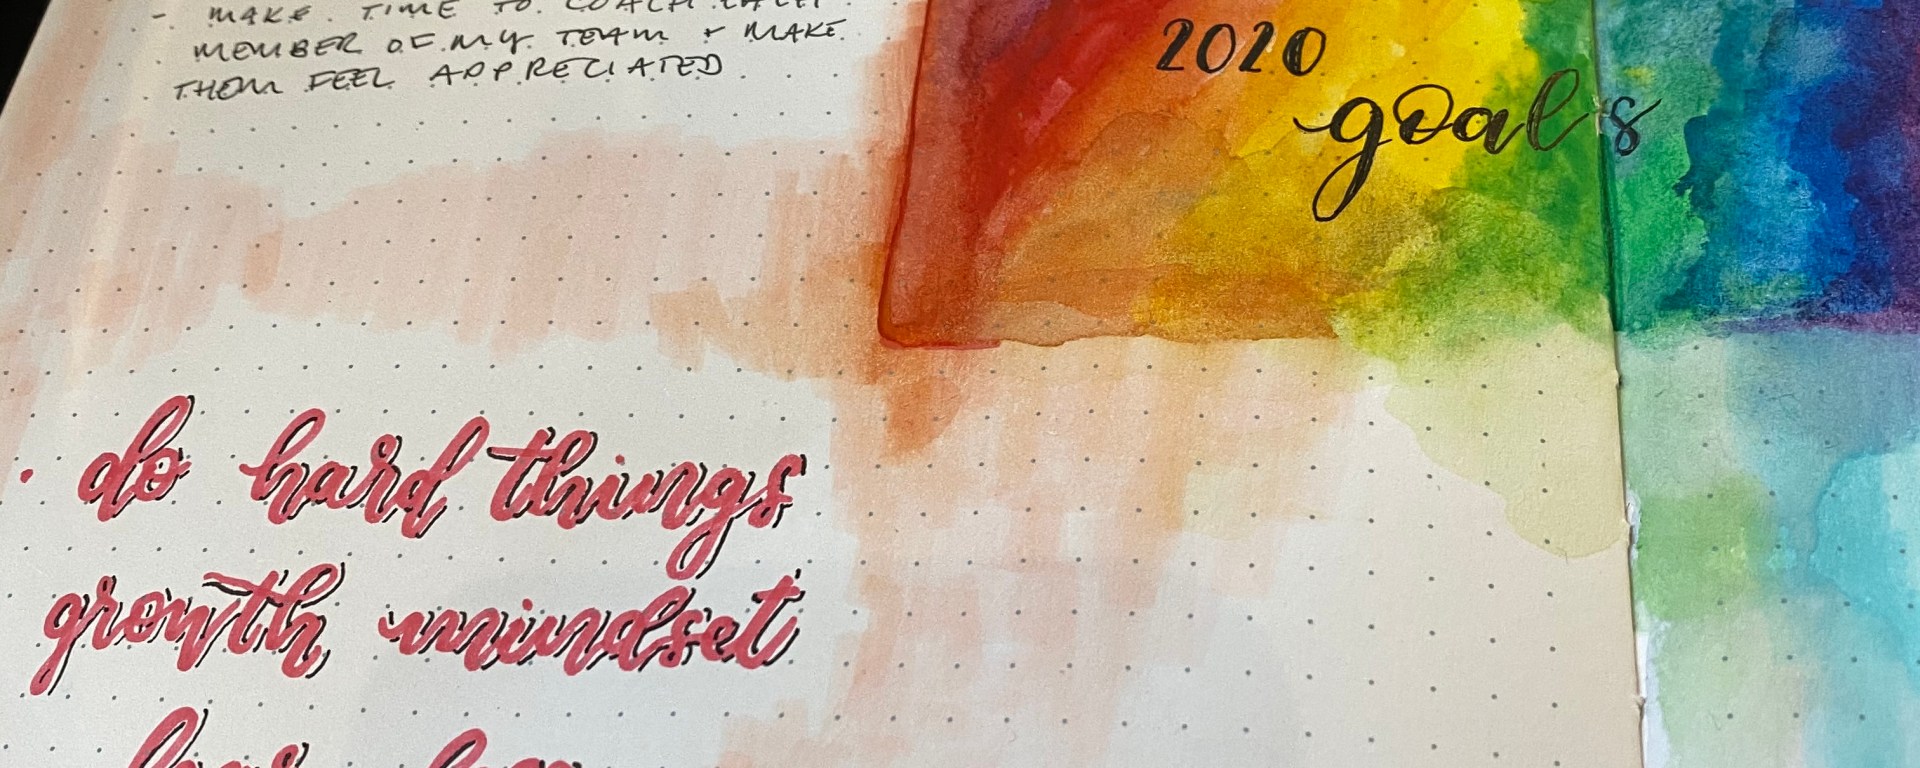 - MAKE TIME TO COACH EACH
MEMBER OF MY TEAM + MAKE
THEM FEEL APPRECIATED
2020
goals
· do hard things
growth mindset